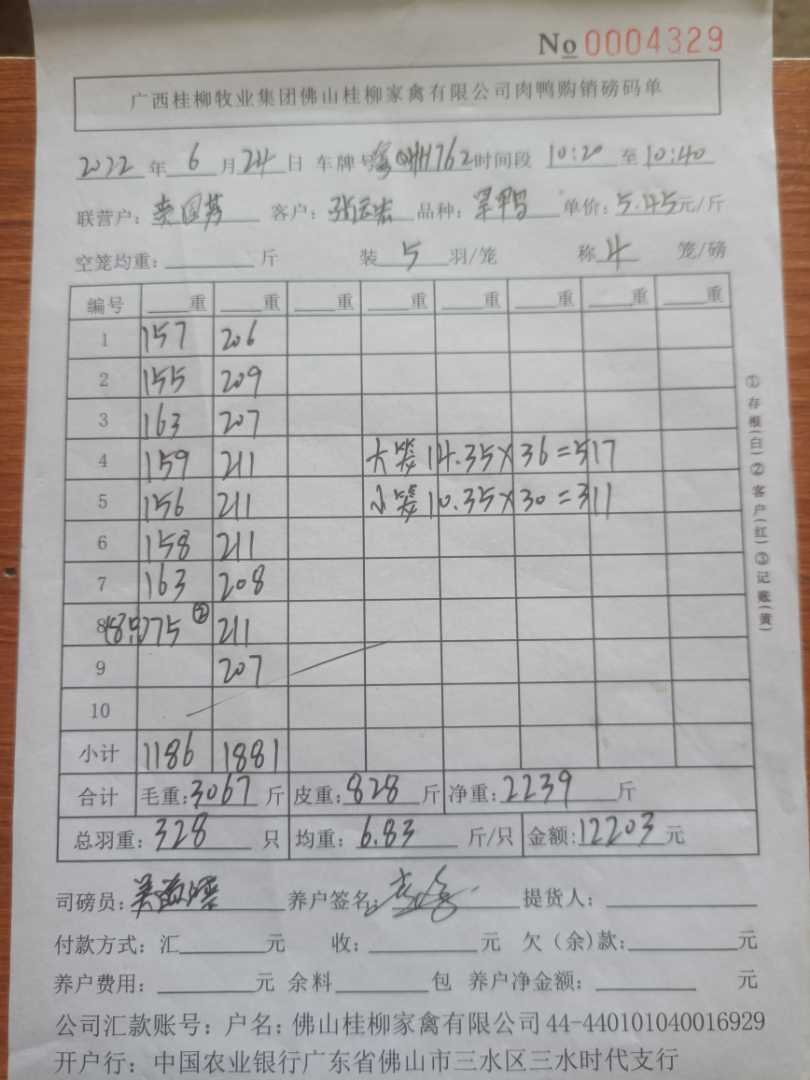 No 0004329
广西桂柳牧业集团佛山桂柳家禽有限公司肉鸭购销磅码单
2022 年 6 月 24 日 车牌号 762 时间段 10:20 至 10:40
联营户: 客户: 张 品种: 鸭 单价: 5.45 元/斤
空笼均重: 斤 装 5 羽/笼 称 4 笼/磅
编号 重 重 重 重 重 重 重 重
1 157 206
2 155 209
3 163 207
4 159 211 大笼 14.35×36=517
5 156 211 小笼 10.35×30=311
6 158 211
7 163 208
8 (8只) 75 ② 211
9 207
10
小计 1186 1881
合计 毛重: 3067 斤 皮重: 828 斤 净重: 2239 斤
总羽重: 328 只 均重: 6.83 斤/只 金额: 12203 元
司磅员: 养户签名: 提货人:
付款方式: 汇 元 收: 元 欠(余)款: 元
养户费用: 元 余料 包 养户净金额: 元
公司汇款账号: 户名: 佛山桂柳家禽有限公司 44-440101040016929
开户行: 中国农业银行广东省佛山市三水区三水时代支行
①存根(白)②客户(红)③记账(黄)